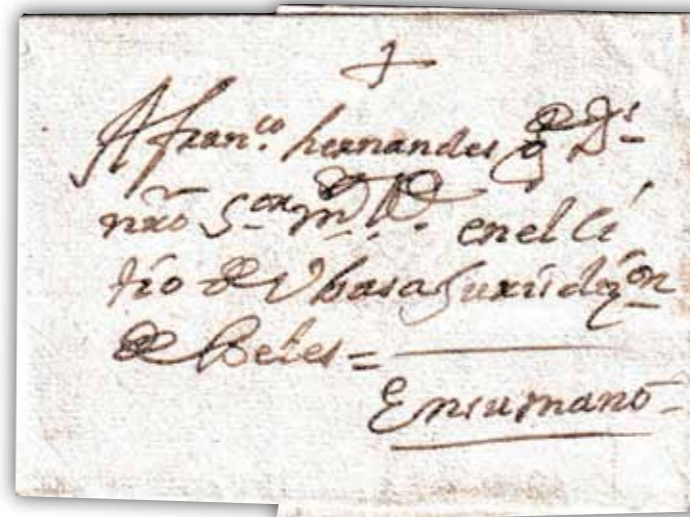 A fran.co hernandes g de Ds
nro Sor m.s a.s en el ci
tio de Vbasa Jurisdizon
de Beles =
En su mano =